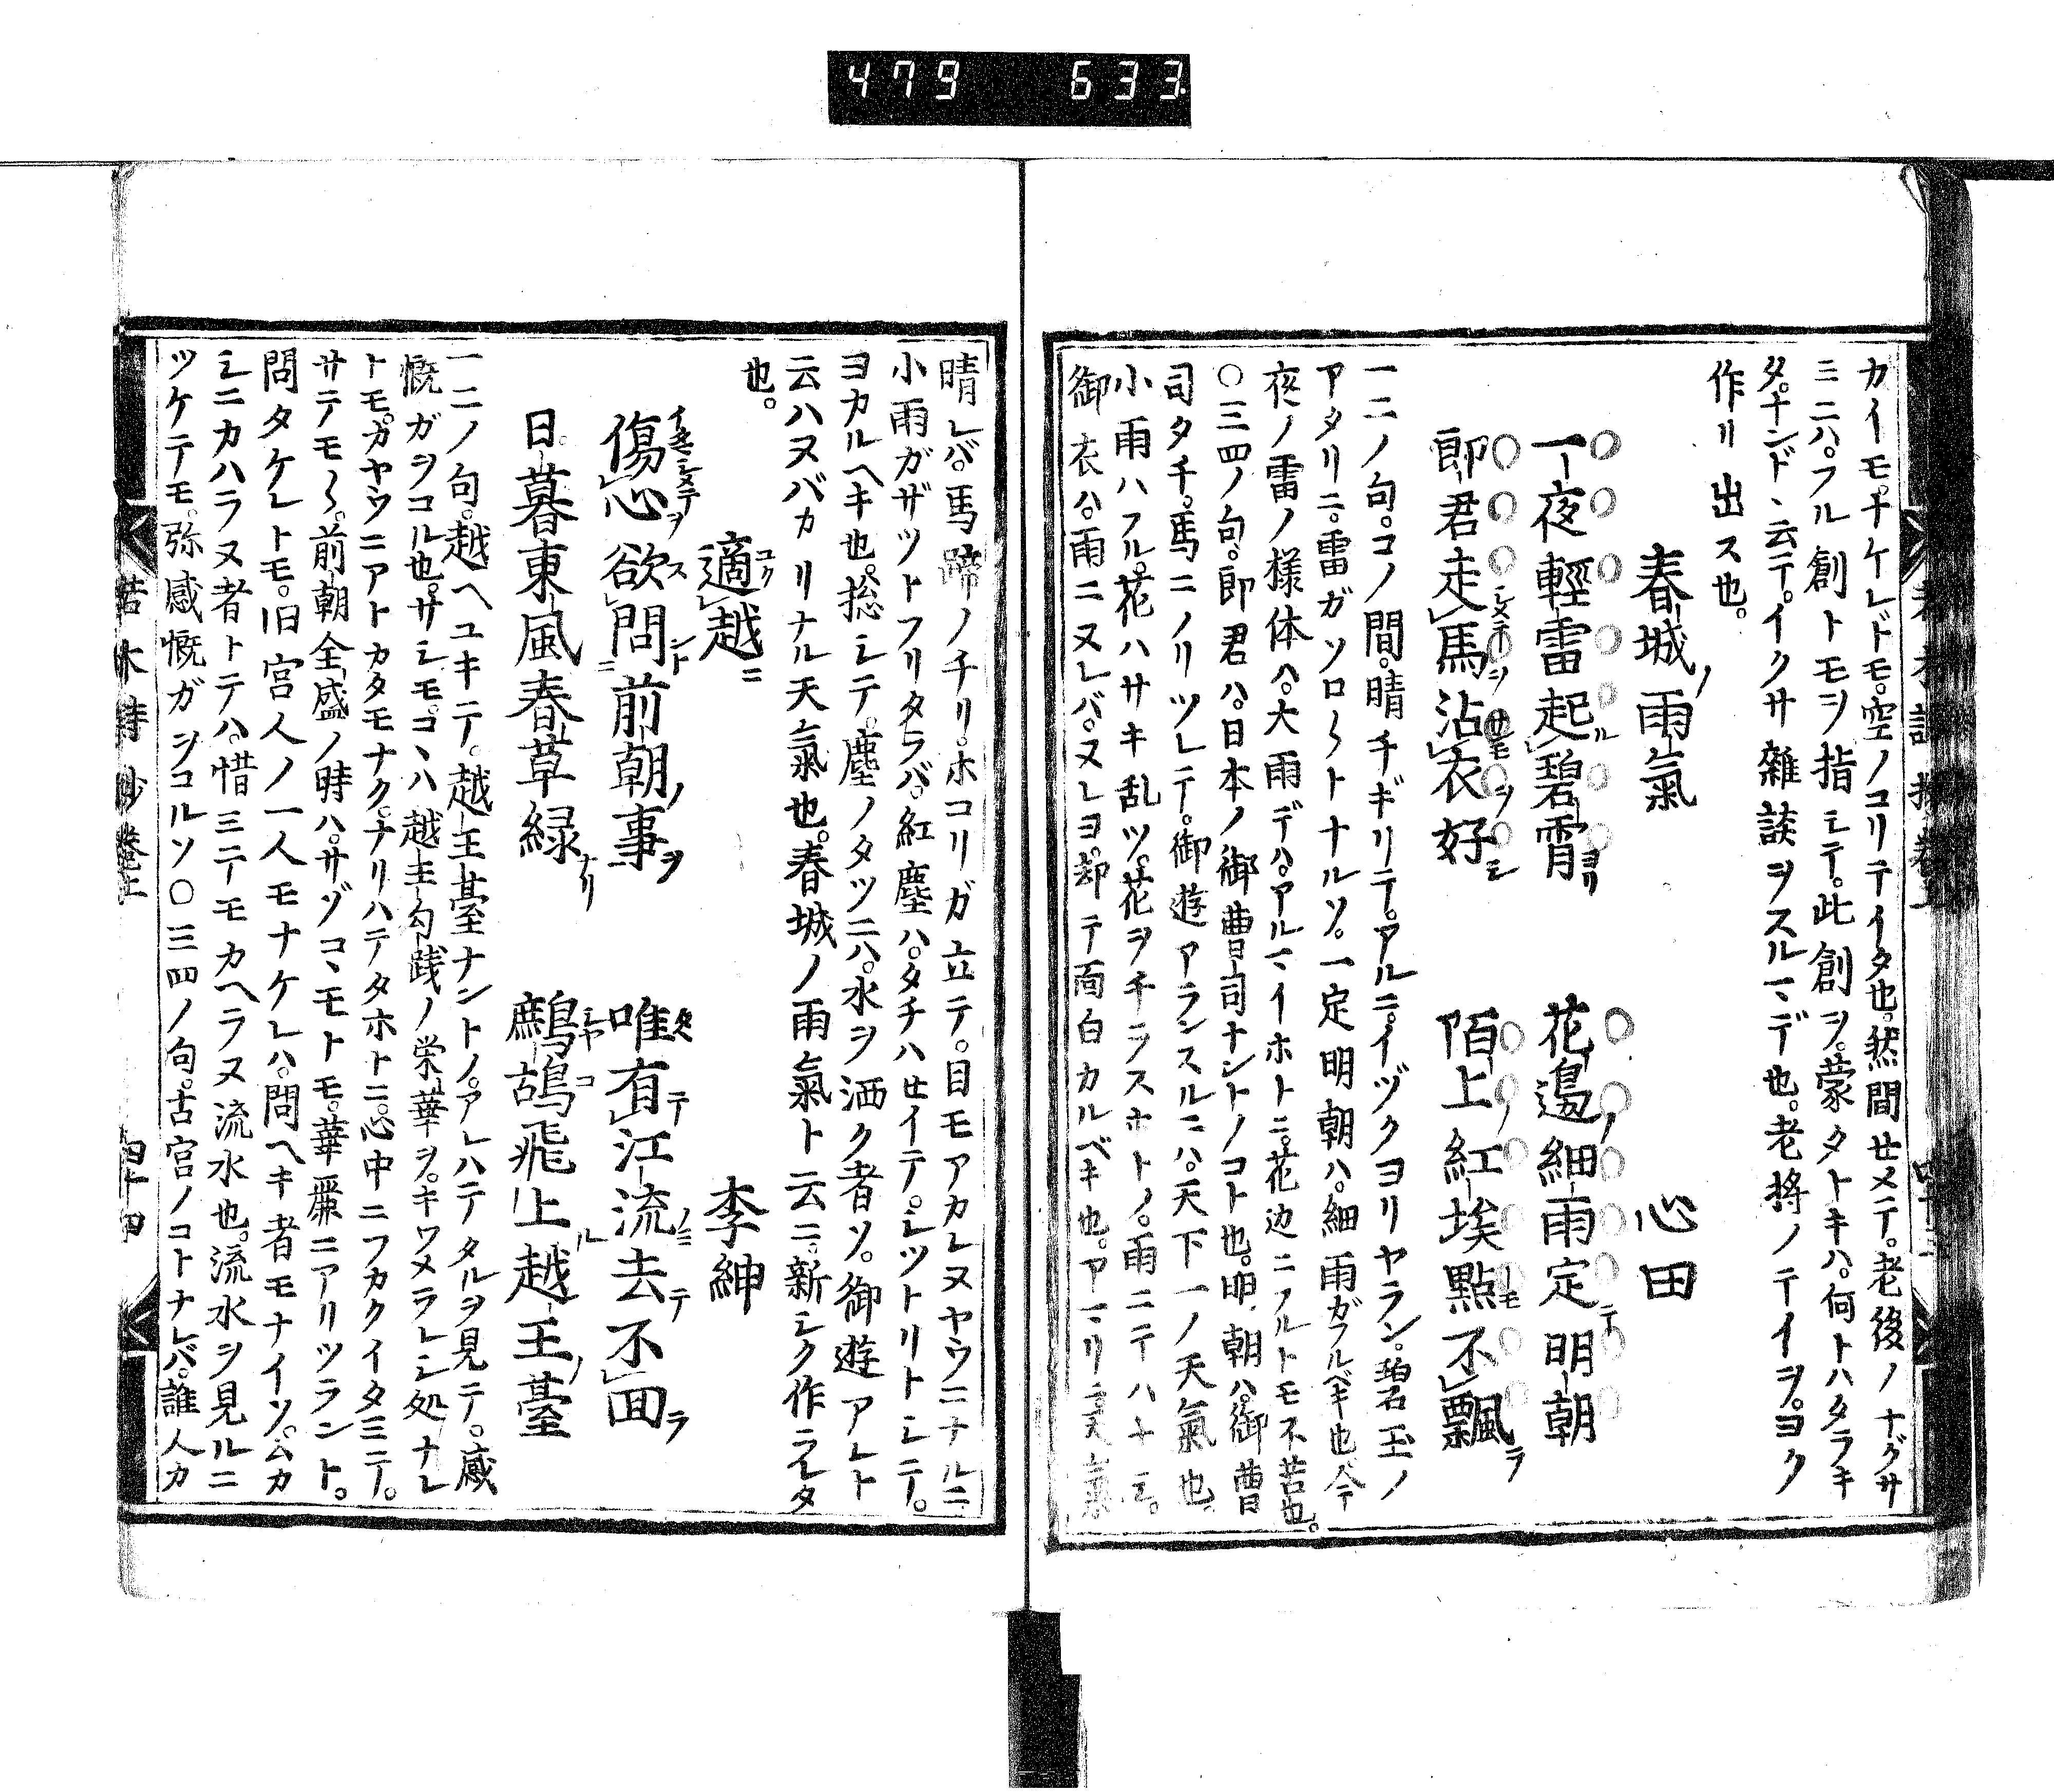 479 633
カイモ。ナケレドモ。空ノコリテイタ也。然間せメテ。老後ノナグサ
ミニハ。フル創トモヲ指シテ。此創ヲ。蒙タトキハ。何トハタラキ
タ。ナンド丶云テ。イクサ雜談ヲスルマデ也。老將ノテイヲ。ヨク
作リ出ス也。
春城ノ雨氣 心田
一夜輕雷起ル碧霄ヨリ 花邉ノ細雨定テ明朝
郎君走馬沾衣好シ 陌上ノ紅埃點モ不飄ラ
一二ノ句。コノ間。晴チギリテ。アルニ。イヅクヨリヤラン。碧玉ノ
アタリニ。雷ガソロ〱トナルソ。一定明朝ハ。細雨ガフルベキ也。今
夜ノ雷ノ様体ハ。大雨デハ。アルマイホトニ。花边ニフルトモ不苦也。
〇三四ノ句。郎君ハ。日本ノ御曹司ナントノコト也。明朝ハ。御曹
司タチ。馬ニノリツレテ。御遊アランスルニハ。天下一ノ天氣也。
小雨ハフル。花ハサキ乱ツ。花ヲチラスホトノ。雨ニテハナシ。
御衣ハ。雨ニヌレバ。ヌレヨ。却テ面白カルベキ也。アマリニ天氣
晴レバ。馬蹄ノチリ。ホコリガ立テ。目モアカレヌヤウニナルニ
小雨ガザツトフリタラバ。紅塵ハ。タチハせイテ。シツトリトシテ。
ヨカルヘキ也。揔シテ。塵ノタツニハ。水ヲ洒ク者ソ。御遊アレト
云ハヌバカリナル天氣也。春城ノ雨氣ト云ニ。新シク作ラレタ
也。
適コク越ニ 李紳
傷心ヲ欲ス問ント前朝ノ事ヲ 唯有テ江流ノミ去テ不囬ラ
日暮東風春草緑ナリ 鷓シヤ鴣コ飛上ル越王ノ臺
一二ノ句。越ヘユキテ。越王臺ナントノ。アレハテタルヲ見テ。感
慨ガヲコル也。サシモ。コ丶ハ越王勾践ノ栄華ヲ。キワメラレシ処ナレ
トモ。カヤウニアトカタモナク。ナリハテタホトニ。心中ニフカクイタミテ。
サテモ〱。前朝全盛ノ時ハ。サゾコ丶モトモ。華麗ニアリツラント。
問タケレトモ。旧宮人ノ一人モナケレハ。問ヘキ者モナイソ。ムカ
シニカハラヌ者トテハ。惜ミテモカヘラヌ流水也。流水ヲ見ルニ
ツケテモ。弥感慨ガヲコルソ〇三四ノ句。古宮ノコトナレバ。誰人カ
若木詩抄卷上 四十四